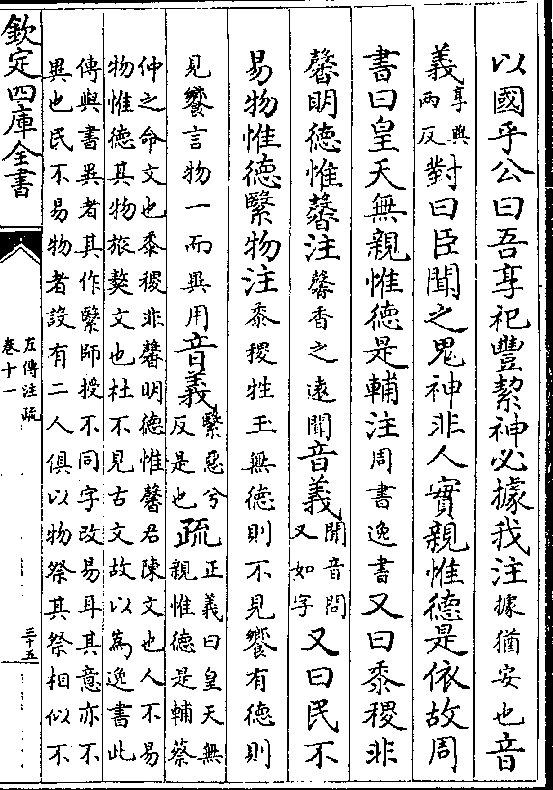 以國乎公曰吾享祀豐絜神必據我注據猶安也音
義享興
兩反對曰臣聞之鬼神非人實親惟德是依故周
書曰皇天無親惟德是輔注周書逸書又曰黍稷非
馨明德惟馨注馨香之遠聞音義聞音問
又如字又曰民不
易物惟德繄物注黍稷牲玉無德則不見饗有德則
見饗言物一而異用音義繄惡兮
反是也疏正義曰皇天無
親惟德是輔蔡
仲之命文也黍稷非馨明德惟馨君陳文也人不易
物惟德其物旅獒文也杜不見古文故以為逸書此
傳與書異者其作繄師授不同字改易耳其意亦不
異也民不易物者設有二人俱以物祭其祭相似不
欽定四庫全書
左傳注疏
卷十一
三十五